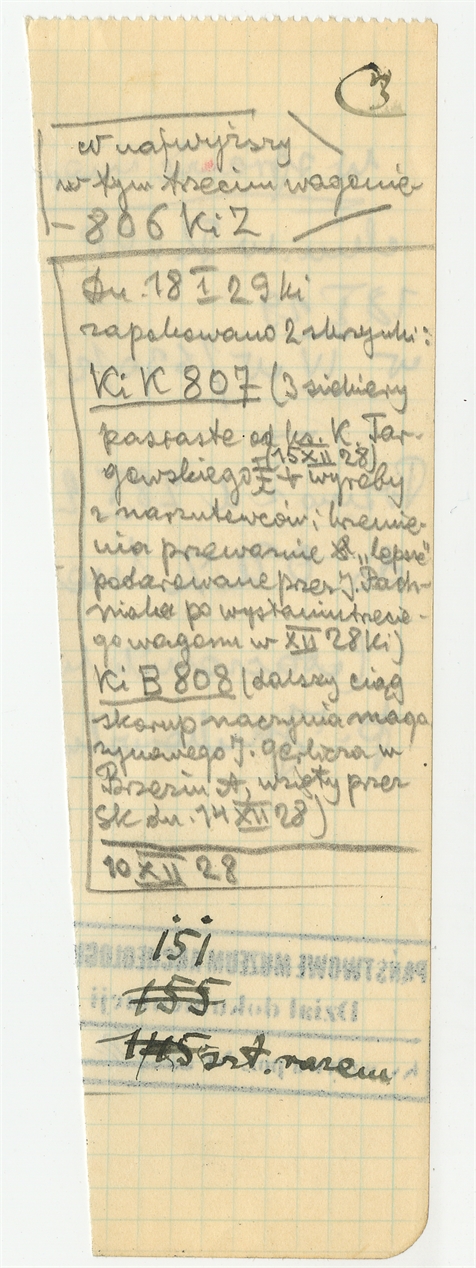 3
w najwyższy
w tym trzecim wagonie
- 806 Ki Z
Dn. 18 I 29 ki
zapakowano 2 skrzynki:
Ki K 807 (3 siekiery
pasiaste od ks. K. Tar-
(15 XII 28)
gowskiego + wyręby
z narzutowców i krzemie-
nia przeważnie "lepsze"
podarowane przez J. Pach-
niaka po wysłaniu trzecie-
go wagonu w XII 28 ki)
Ki B 808 (dalszy ciąg
skorup naczynia maga
zynowego J. Gerlicza w
Brzezin A, wzięty przez
Sk dn. 14 XII 28)
10 XII 28
151
155
145 szt. razem
PAŃSTWOWE MUZEUM ARCHEOLOGI
Dział dokumentacji